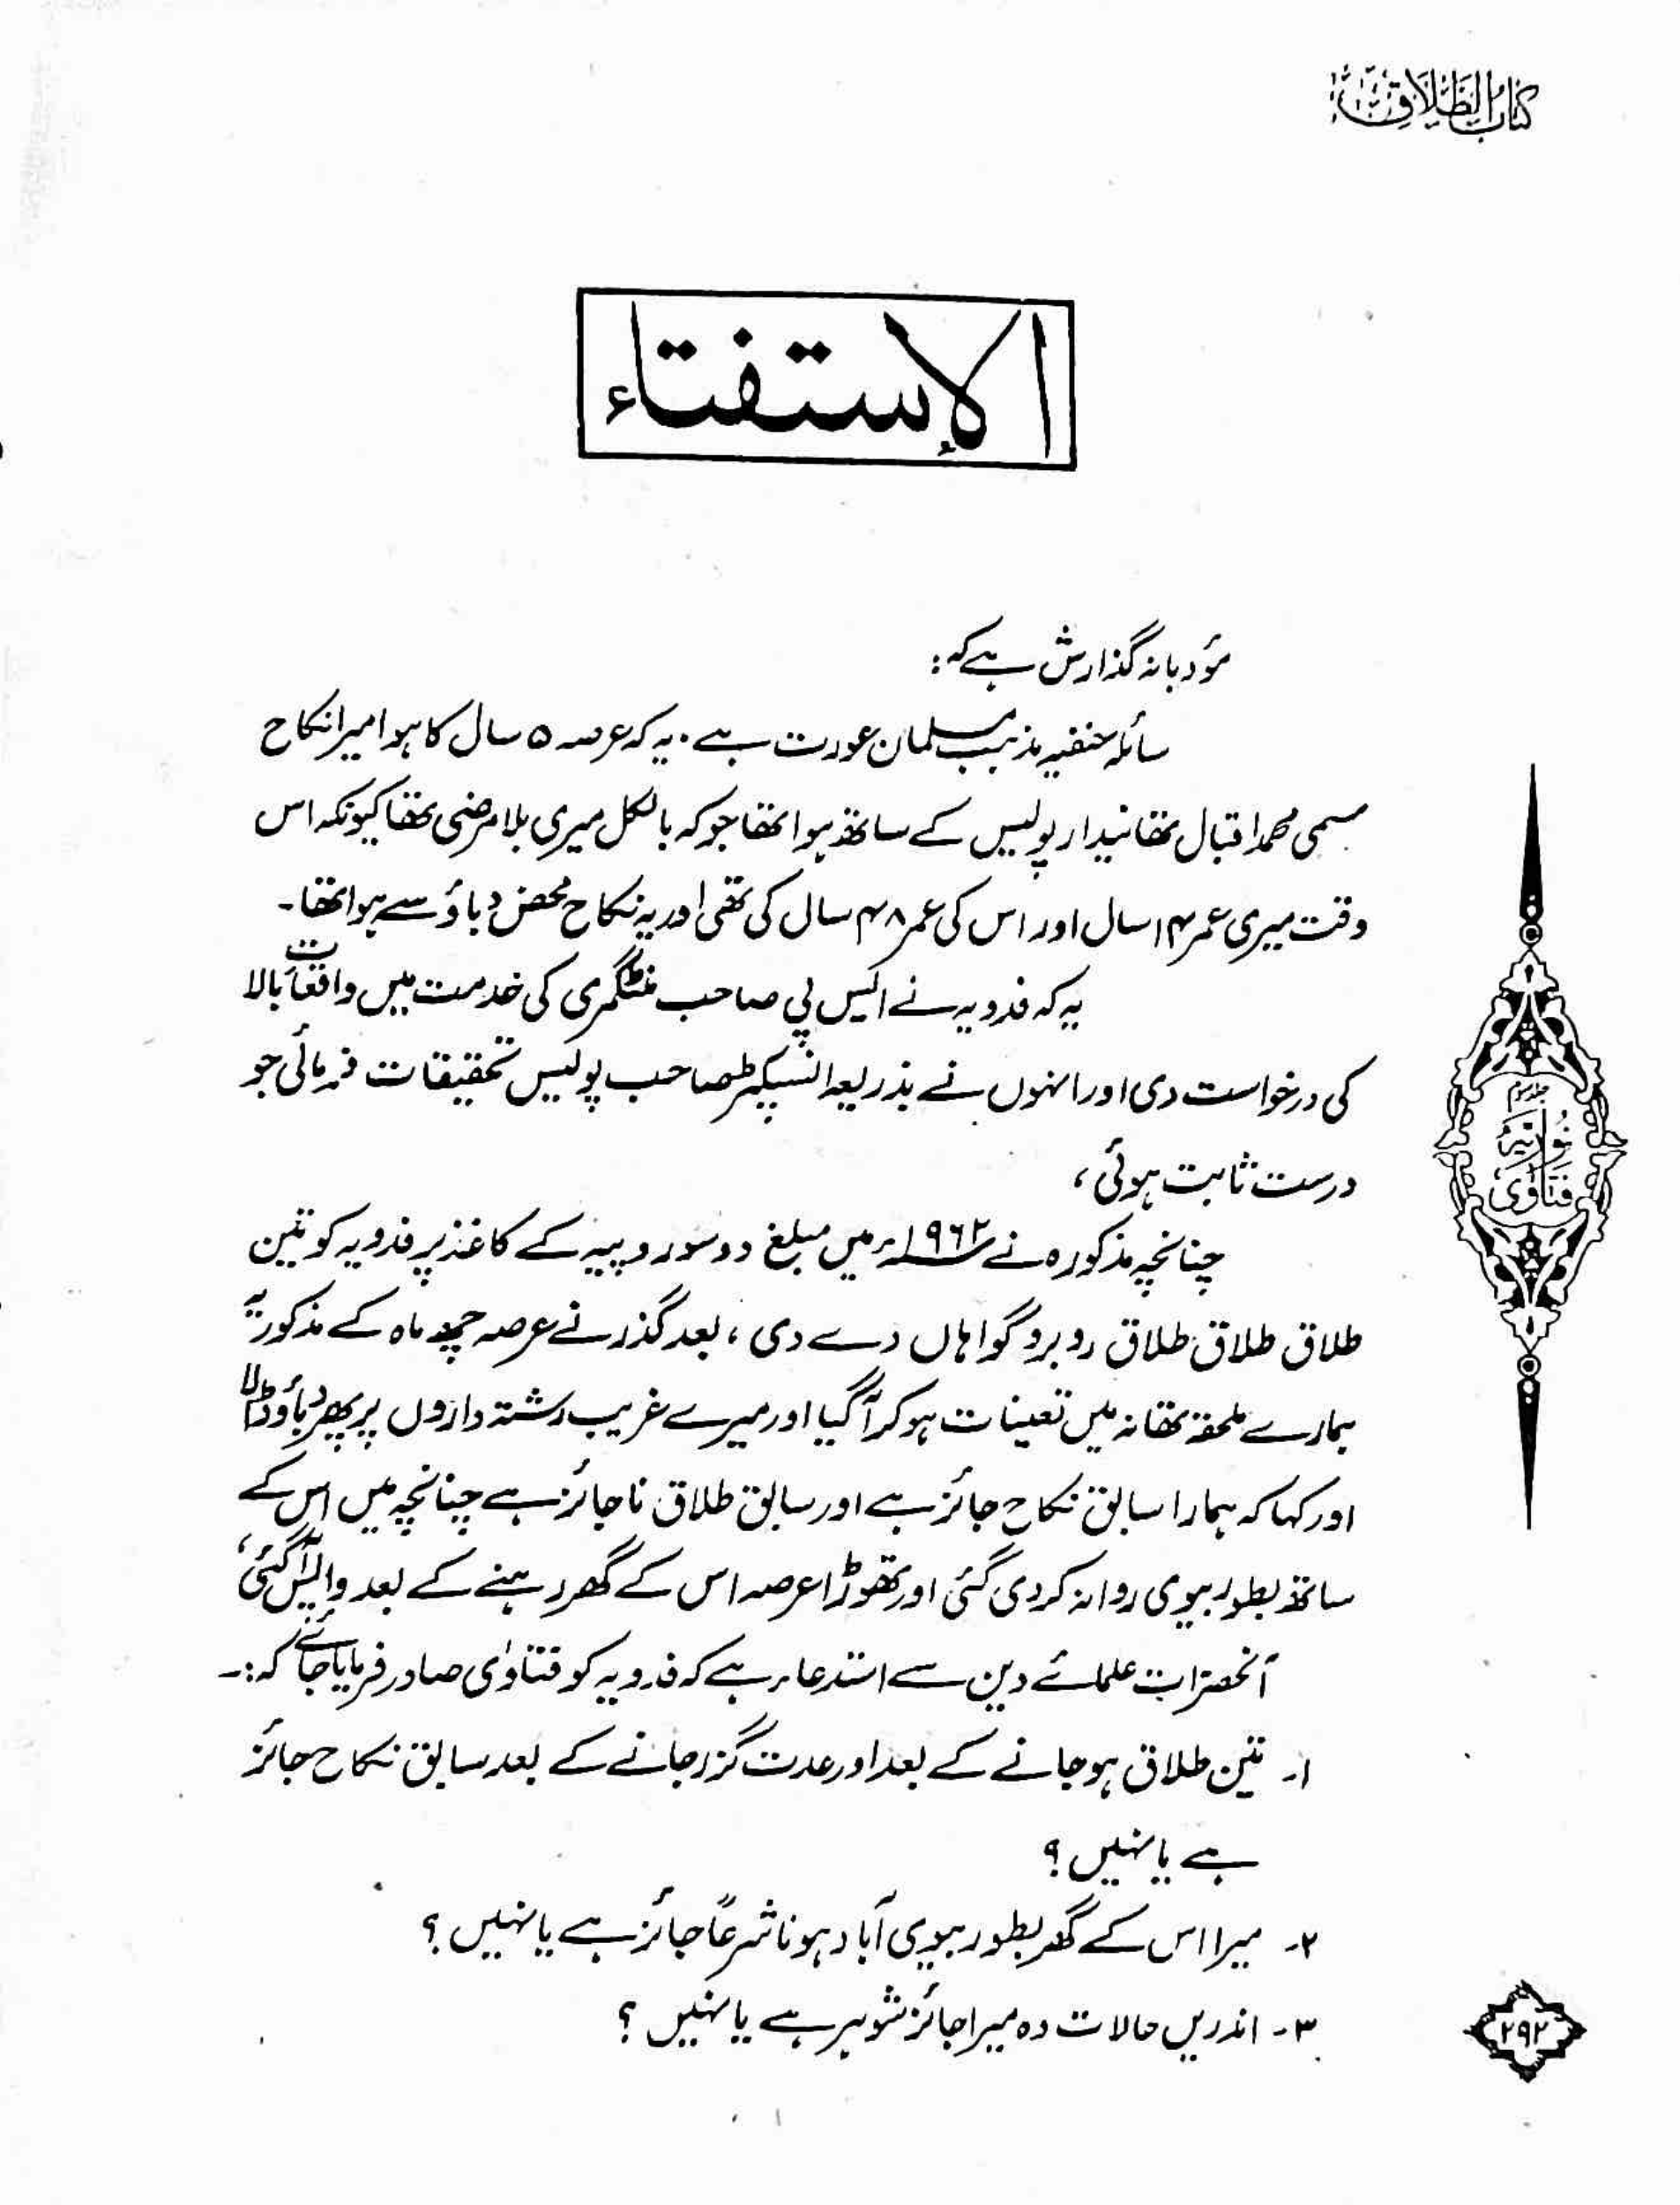 کتاب الطلاق
الإستفتاء
مؤدبانہ گذارش ہے کہ:
سائلہ حنفیہ مذہب مسلمان عورت ہے۔ یہ کہ عرصہ ۵ سال کا ہوا میرا نکاح
مسمی محمد اقبال تھانیدار پولیس کے ساتھ ہوا تھا جو کہ بالکل میری بلا مرضی تھا کیونکہ اس
وقت میری عمر ۱۴ سال اور اس کی عمر ۴۸ سال کی تھی اور یہ نکاح محض دباؤ سے ہوا تھا۔
یہ کہ فدویہ نے ایس پی صاحب منٹگمری کی خدمت میں واقعات بالا
کی درخواست دی اور انہوں نے بذریعہ انسپکٹر صاحب پولیس تحقیقات فرمائی جو
درست ثابت ہوئی،
چنانچہ مذکورہ نے ۱۹۶۲ء میں مبلغ دو سو روپیہ کے کاغذ پر فدویہ کو تین
طلاق طلاق طلاق روبرو گواہاں دے دی، بعد گذرنے عرصہ چھ ماہ کے مذکوریہ
ہمارے ملحقہ تھانہ میں تعینات ہو کر آگیا اور میرے غریب رشتہ داروں پر پھر دباؤ ڈالا
اور کہا کہ ہمارا سابق نکاح جائز ہے اور سابق طلاق ناجائز ہے چنانچہ میں اس کے
ساتھ بطور بیوی روانہ کر دی گئی اور تھوڑا عرصہ اس کے گھر رہنے کے بعد واپس آگئی،
آنحضرات علمائے دین سے استدعاء ہے کہ فدویہ کو فتاوٰی صادر فرمایا جائے کہ:۔
۱۔ تین طلاق ہو جانے کے بعد اور عدت گزر جانے کے بعد سابق نکاح جائز
ہے یا نہیں؟
۲۔ میرا اس کے گھر بطور بیوی آباد ہونا شرعًا جائز ہے یا نہیں؟
۳۔ اندریں حالات وہ میرا جائز شوہر ہے یا نہیں؟
فتاوی
نوریہ
۲۹۲